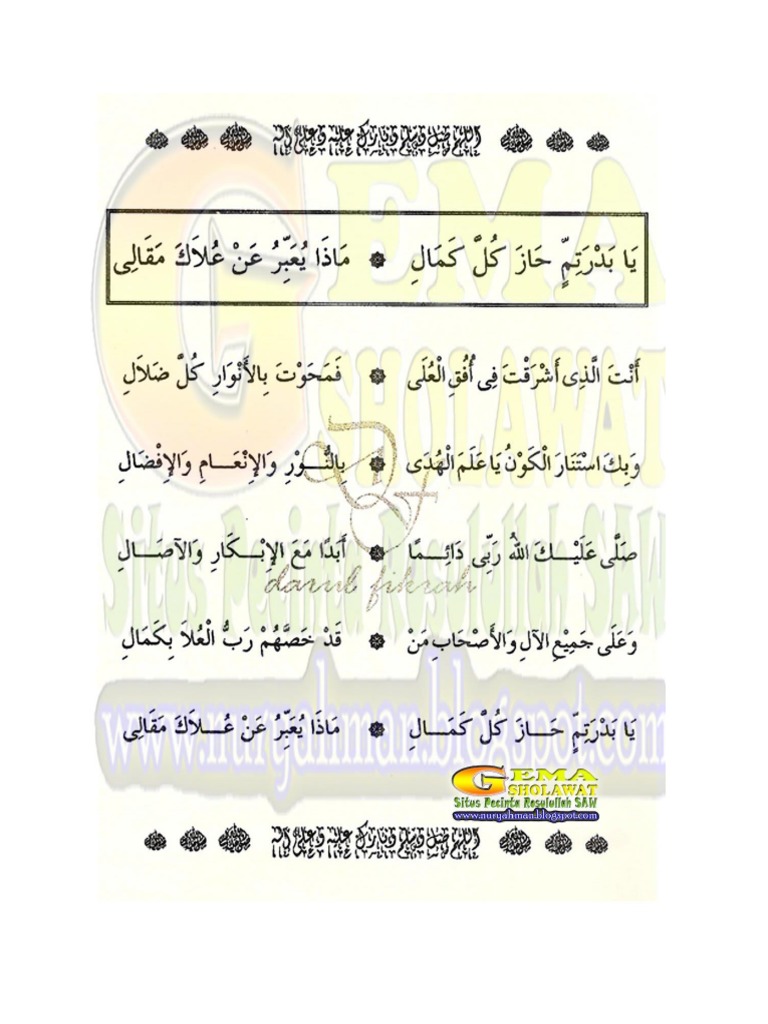 اللهم صل وسلم وبارك عليه وعلى آله
يَا بَدْرَتِمٍّ حَازَ كُلَّ كَمَالِ ۞ مَاذَا يُعَبِّرُ عَنْ عُلاَكَ مَقَالِى
أَنْتَ الَّذِى أَشْرَقْتَ فِى أُفُقِ الْعُلَى ۞ فَمَحَوْتَ بِالأَنْوَارِ كُلَّ ضَلاَلِ
وَبِكَ اسْتَنَارَ الْكَوْنُ يَا عَلَمَ الْهُدَى ۞ بِالنُّوْرِ وَالإِنْعَامِ وَالإِفْضَالِ
صَلَّى عَلَيْكَ اللهُ رَبِّى دَائِمًا ۞ أَبَدًا مَعَ الإِبْكَارِ وَالآصَالِ
وَعَلَى جَمِيْعِ الآلِ وَالأَصْحَابِ مَنْ ۞ قَدْ خَصَّهُمْ رَبُّ الْعُلاَ بِكَمَالِ
يَا بَدْرَتِمٍّ حَازَ كُلَّ كَمَالِ ۞ مَاذَا يُعَبِّرُ عَنْ عُلاَكَ مَقَالِى
GEMA
SHOLAWAT
Situs Pecinta Rosulullah SAW
www.nuryahman.blogspot.com
darul fikrah
GEMA
SHOLAWAT
Situs Pecinta Rosulullah SAW
www.nuryahman.blogspot.com
اللهم صل وسلم وبارك عليه وعلى آله